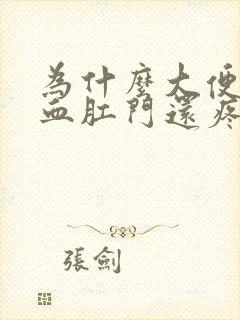 為什麼大便
血肛門還疼
張劍